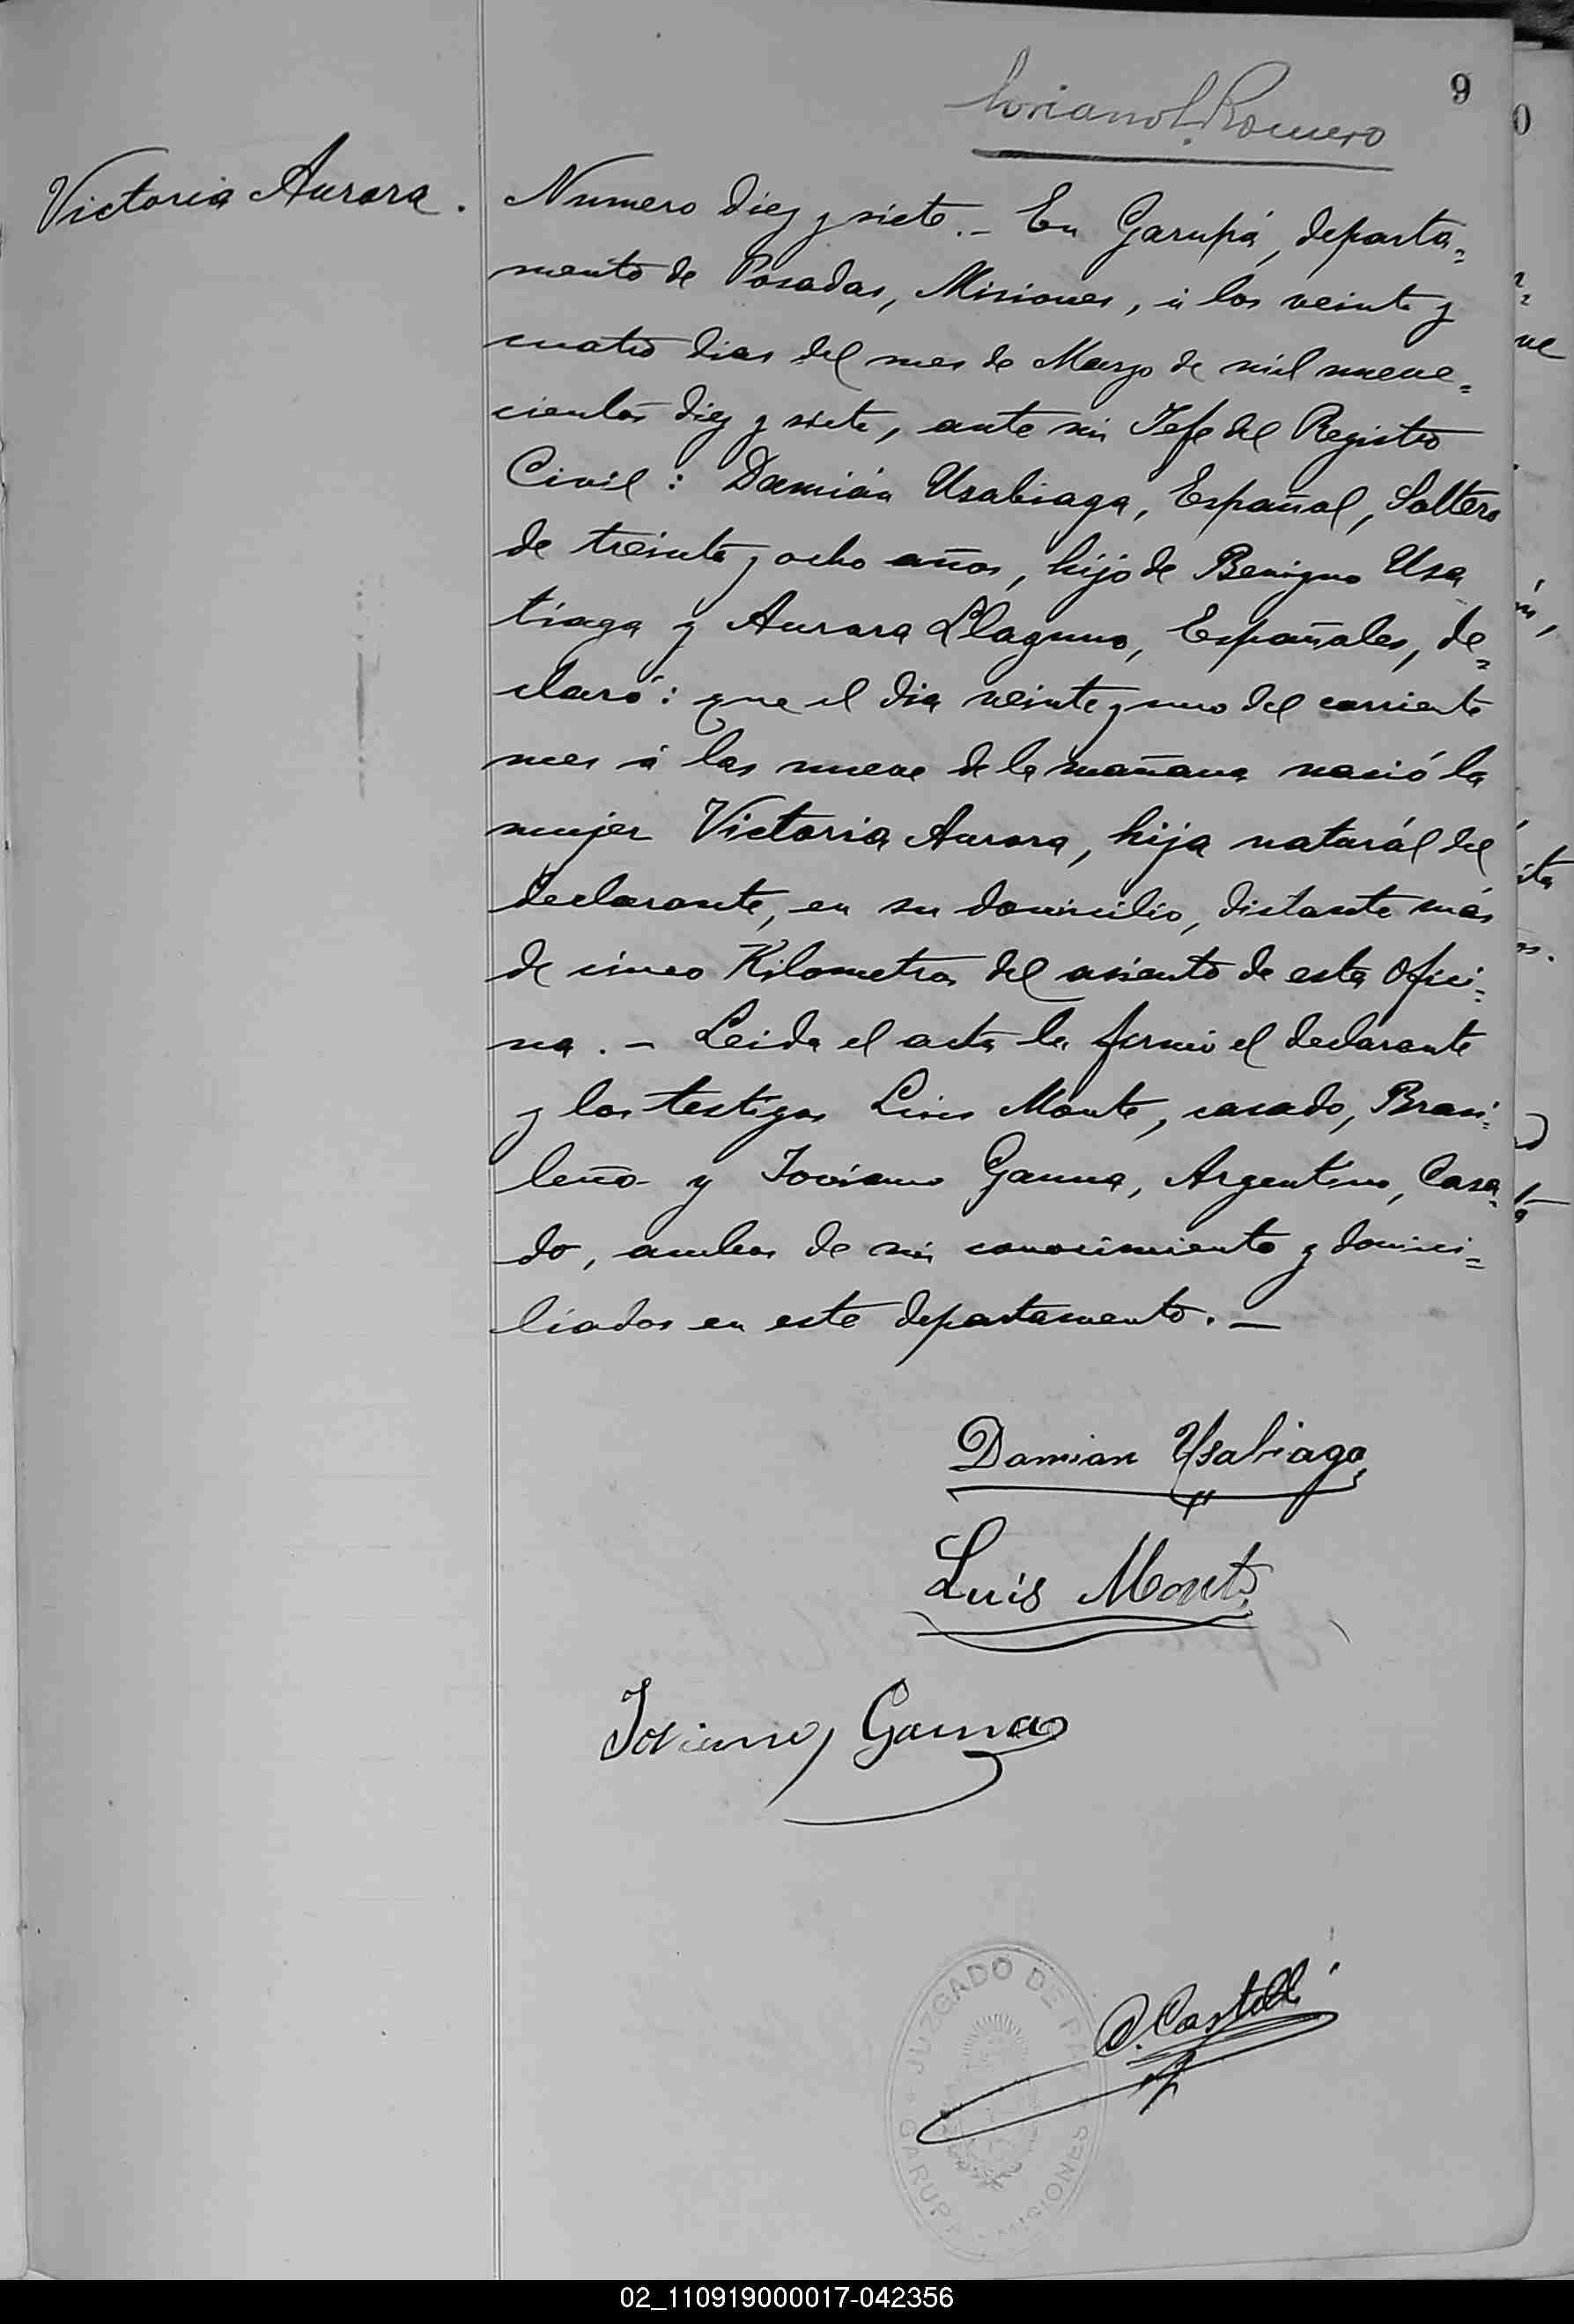 9
Romero
Victoria Aurora.
Numero diez y siete.- En Garupá, departa=
mento de Posadas, Misiones, á los veinte y
cuatro dias del mes de Marzo de mil nueve=
cientos diez y siete, ante mi Jefe del Registro
Civil: Damián Usabiaga, Español, Soltero
de treinta y ocho años, hijo de Benigno Usa
tiaga y Aurora Llaguno, Españoles, de=
claró: que el dia veinte y uno del corriente
mes á las nueve de la mañana nació la
mujer Victoria Aurora, hija naturál del
declarante, en su domicilio, distante más
de cinco Kilometros del asiento de esta ofici=
na. - Leida el acta la firmó el declarante
y los testigos Luis Monte, casado, Brasi=
leño y Joviano Gauna, Argentino, Casa=
do, ambos de mi conocimiento y domici=
liados en este departamento. -
Damian Usabiaga
Luis Monte
Joviano Gauna
JUZGADO DE PAZ
GARUPA MISIONES
02_110919000017-042356